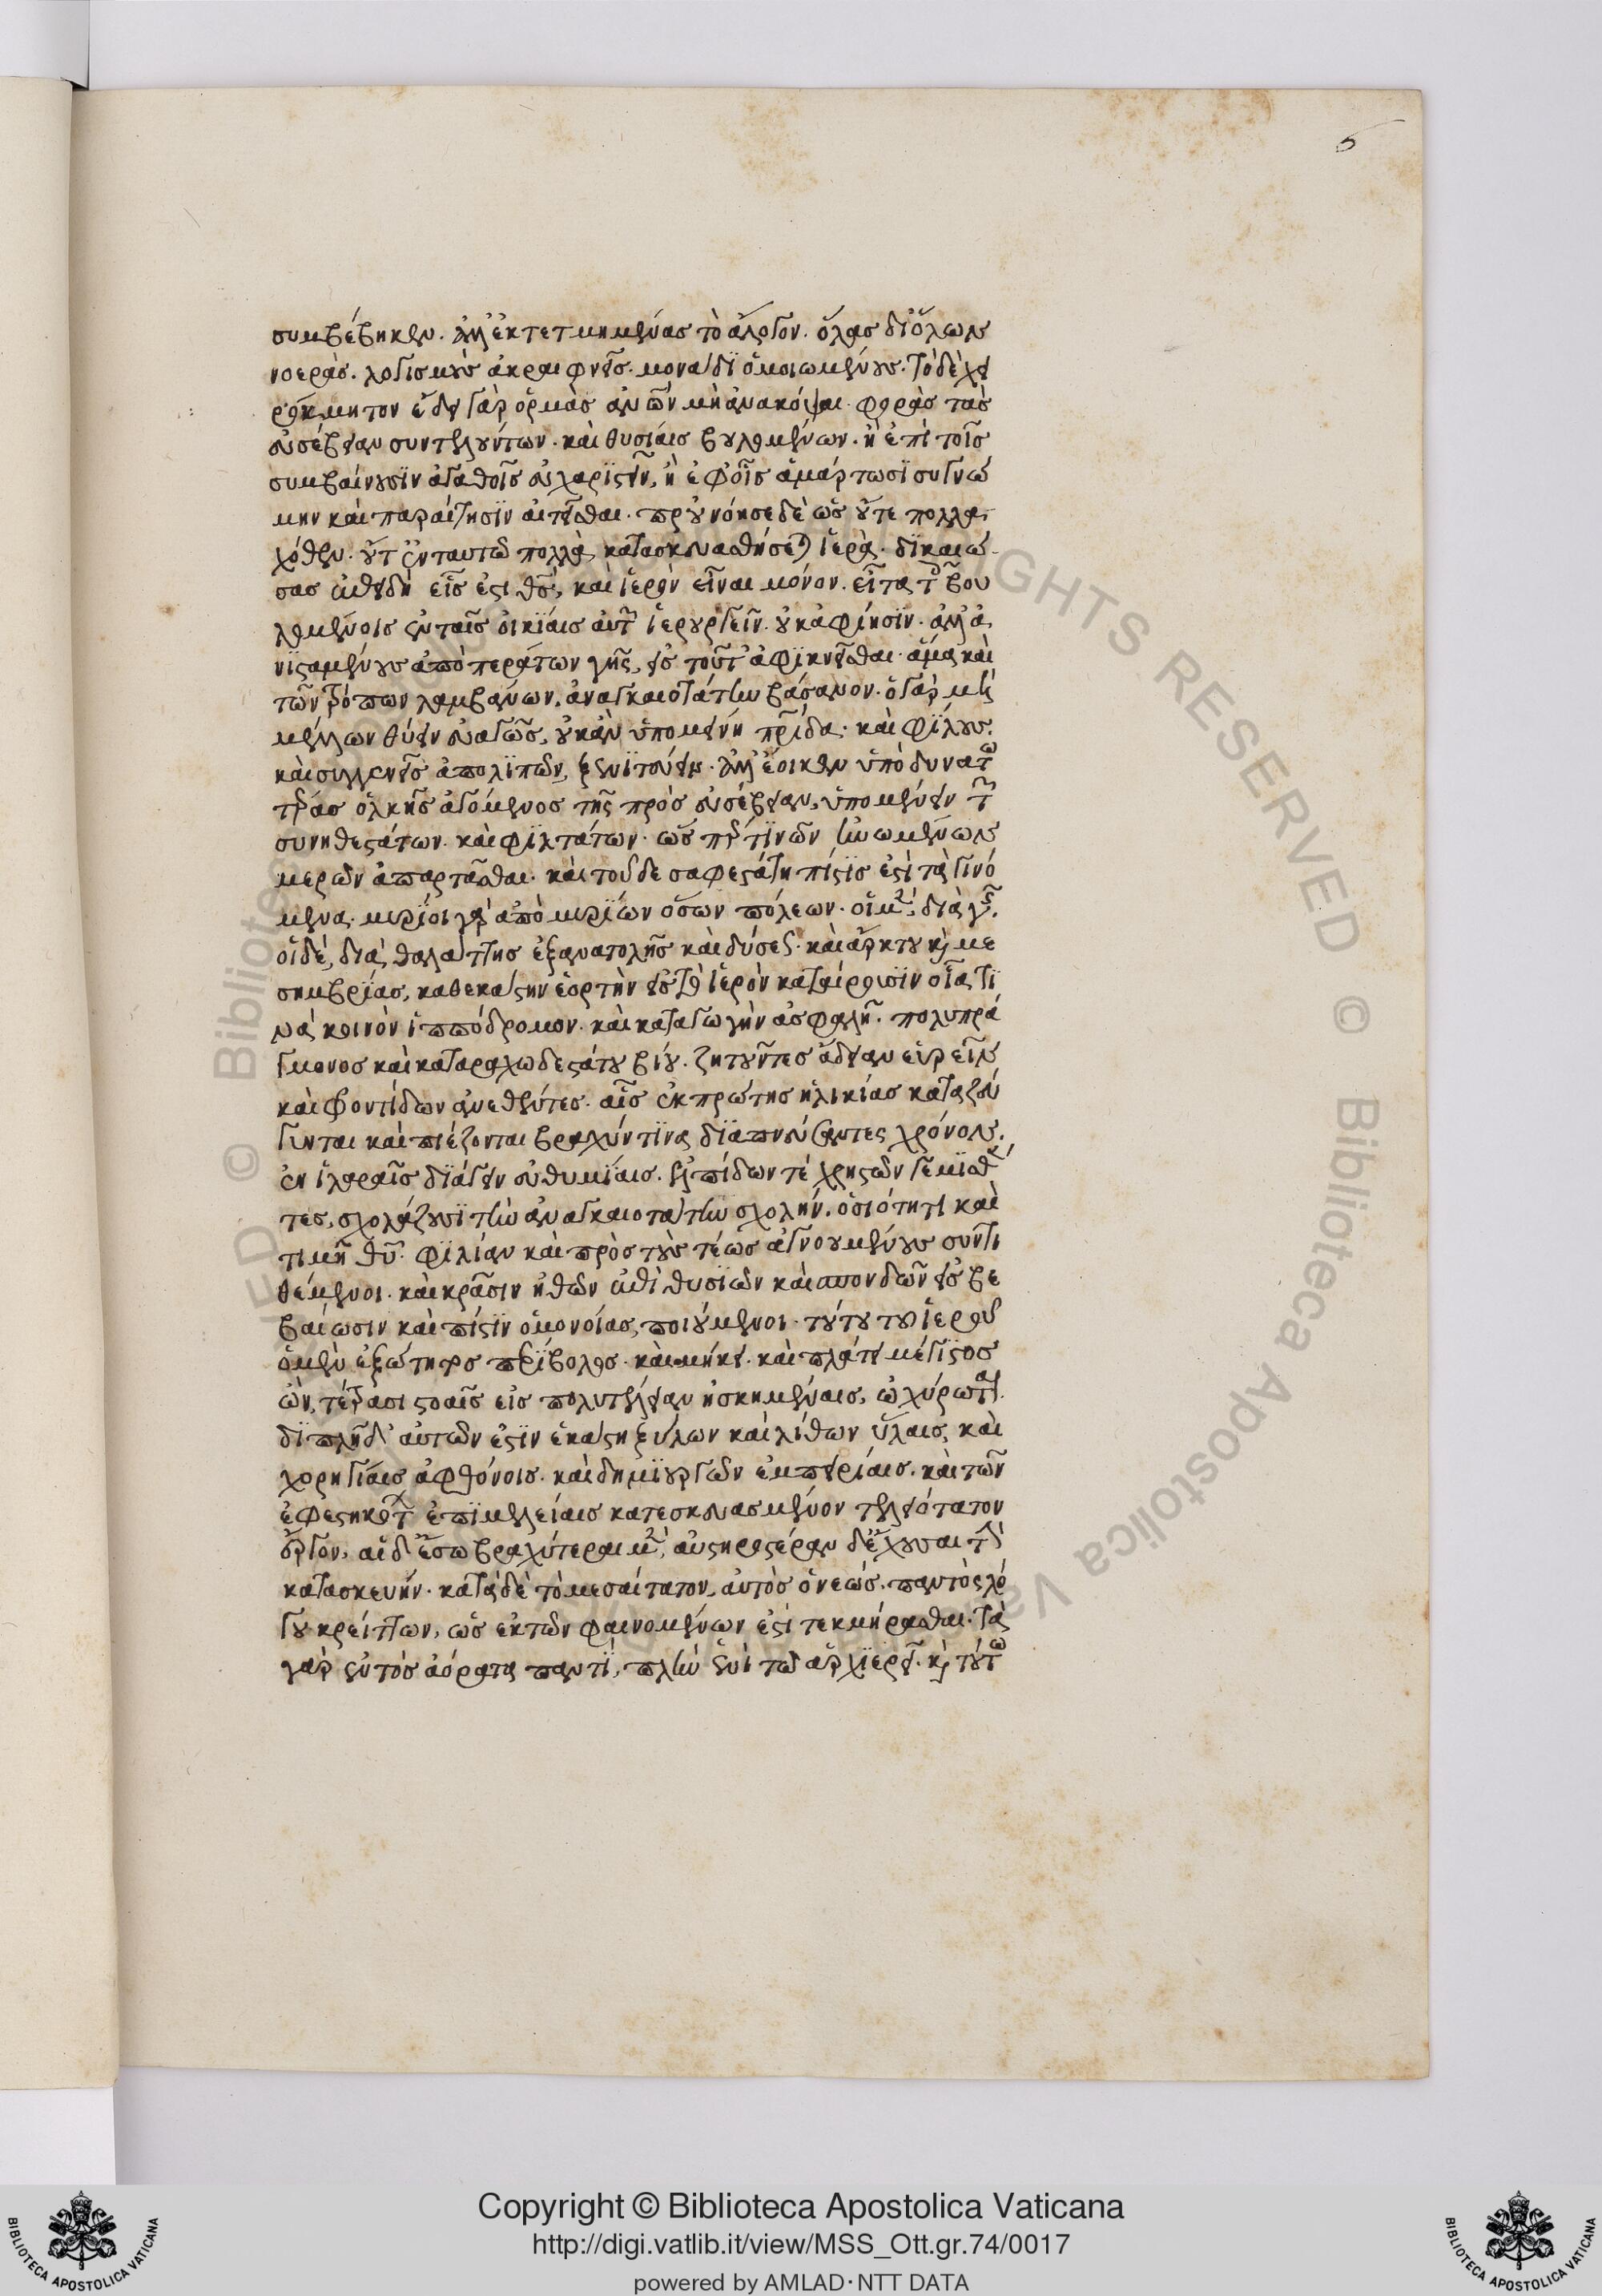 6
συμβέβηκεν. ἀλλ' ἐκτετμημένας τὸ ἄλογον. ὅλας δι' ὅλων
νοεράς. λογισμοὺς ἀκραιφνεῖς. μονάδι ὁμοιωμένους. τὸ δὲ χει
ρόκμητον ἔδει γὰρ ὁρμὰς ἀνων μὴ ἀνακόψαι. φορὰς τὰς
εὐσέβειαν συντελούντων. καὶ θυσίαις βουλομένων. ἢ ἐπὶ τοῖς
συμβαίνουσιν ἀγαθοῖς εὐχαριστεῖν, ἢ ἐφ' οἷς ἁμάρτωσι συγνώ
μην καὶ παραίτησιν αἰτεῖσθαι. προυνόησε δὲ ὡς οὔτε πολλα
χόθεν. οὔτ' ἐν ταυτῶ πολλὰ κατασκευασθήσεται ἱερά. δικαιώ
σας ἐπειδὴ εἷς ἐστι θς, καὶ ἱερὸν εἶναι μόνον. εἶτα τοῖς βου
λομένοις ἐν ταῖς οἰκίαις αὐτῶν ἱερουργεῖν. οὐκ ἀφίησιν. ἀλλ' ἀ
νισταμένους ἀπὸ περάτων γῆς, εἰς τοῦτ' ἀφικνεῖσθαι. ἅμα καὶ
τῶν τρόπων λαμβάνων. ἀναγκαιοτάτην βάσανον. ὁ γὰρ μὴ
μέλλων θύειν εὐαγῶς, οὐκ ἂν ὑπομείναι πρίδα. καὶ φίλους.
καὶ συγγενεῖς ἀπολιπὼν, ξενιτεύειν. ἀλλ' ἔοικεν ὑπὸ δυνατω
τέρας ὁλκῆς ἀγόμενος τῆς πρὸς εὐσέβειαν, ὑπομένειν τῶν
συνηθεστάτων. καὶ φιλτάτων. ὥσπερ τινῶν ἡνωμένων
μερῶν ἀπαρτᾶσθαι. καὶ τοῦδε σαφεστάτη πίστις ἐστὶ τὰ γινό
μενα. μυρίοι γὰρ ἀπὸ μυρίων ὅσων πόλεων. οἱ μὲν, διὰ γῆς.
οἱ δὲ, διὰ θαλάττης ἐξ ἀνατολῆς καὶ δύσεως. καὶ ἄρκτου καὶ με
σημβρίας, καθ' ἑκάστην ἑορτὴν εἰς τὸ ἱερὸν καταίρουσιν οἷά τι
να κοινὸν ἱππόδρομον. καὶ καταγωγὴν ἀσφαλῆ. πολυπρά
γμονος καὶ καταραχωδεστάτου βίου. ζητοῦντες ἄδειαν εὑρεῖν
καὶ φροντίδων ἀνεθέντες. αἷς ἐκ πρώτης ἡλικίας καταζεύ
γνυνται καὶ πιέζονται βραχύν τινα διαπνεύσαντες χρόνον.
ἐν ἱλαραῖς διάγειν εὐθυμίαις. ἐλπίδων τὲ χρηστῶν γεμισθέν
τες, σχολάζουσι τὴν ἀναγκαιοτάτην σχολήν. ὁσιότητι καὶ
τιμῇ θῦ. φιλίαν καὶ πρὸς τοὺς τέως ἀγνοουμένους συντι
θέμενοι. καὶ κρᾶσιν ἠθῶν ἐπὶ θυσιῶν καὶ σπονδῶν εἰς βε
βαίωσιν καὶ πίστιν ὁμονοίας, ποιούμενοι. τούτου τοῦ ἱεροῦ
ὁ μὲν ἐξώτηρος περίβολος. καὶ μήκει. καὶ πλάτει μέγιστος
ὢν, τέτρασι στοαῖς εἰς πολυτέλειαν ἠσκημέναις, ὠχύρωται.
διπλῆ δ' αὐτῶν ἐστιν ἑκάστη ξύλων καὶ λίθων ὕλαις, καὶ
χορηγίαις ἀφθόνοις. καὶ δημιουργῶν ἐμπειρίαις. καὶ τῶν
ἐφεστηκότων ἐπιμελείαις κατεσκευασμένον τελειότατον
ἔργον, αἱ δ' εἴσω βραχύτεραι μὲν, αὐστηροτέραν δ' ἔχουσαι τὴν
κατασκευήν. κατὰ δὲ τὸ μεσαίτατον, αὐτὸς ὁ νεώς. παντὸς λό
γου κρείττων, ὡς ἐκ τῶν φαινομένων ἐστὶ τεκμήρασθαι. τὰ
γὰρ ἐντὸς ἀόρατα παντὶ, πλὴν ἑνὶ τῶ ἀρχιερεῖ. καὶ τούτω
Copyright © Biblioteca Apostolica Vaticana
http://digi.vatlib.it/view/MSS_Ott.gr.74/0017
powered by AMLAD·NTT DATA